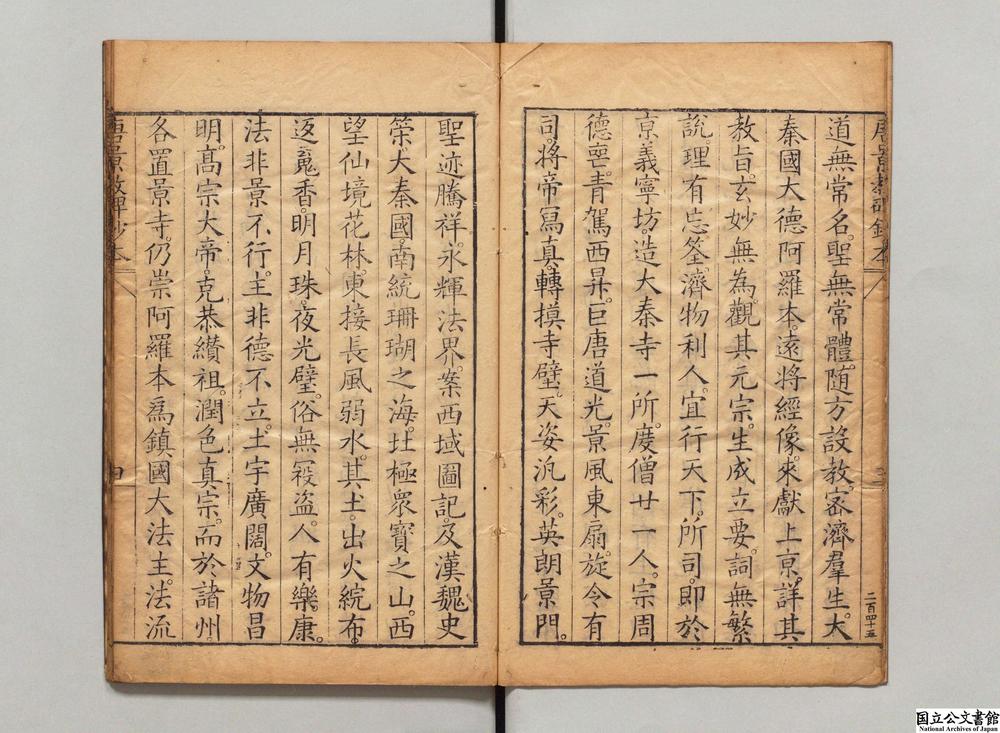 道無常名。聖無常體。随方設教。密濟羣生。大
秦國大德阿羅本。遠將經像。來獻上京。詳其
教旨。玄妙無為。觀其元宗。生成立要。詞無繁
說。理有忘筌。濟物利人。宜行天下。所司。即於
京義寧坊。造大秦寺一所。度僧廿一人。宗周
德喪。青駕西昇。巨唐道光。景風東扇。旋令有
司。將帝寫真。轉摸寺壁。天姿汎彩。英朗景門。
聖迹騰祥。永輝法界。案西域圖記。及漢魏史
策。大秦國。南統珊瑚之海。北極眾寶之山。西
望仙境花林。東接長風弱水。其土。出火綄布。
返䰟香。明月珠。夜光璧。俗無寇盜。人有樂康。
法非景不行。主非德不立。土宇廣闊。文物昌
明。高宗大帝。克恭纘祖。潤色真宗。而於諸州。
各置景寺。仍崇阿羅本爲鎮國大法主。法流
唐景教碑鈔本
二百四十五
国立公文書館
National Archives of Japan